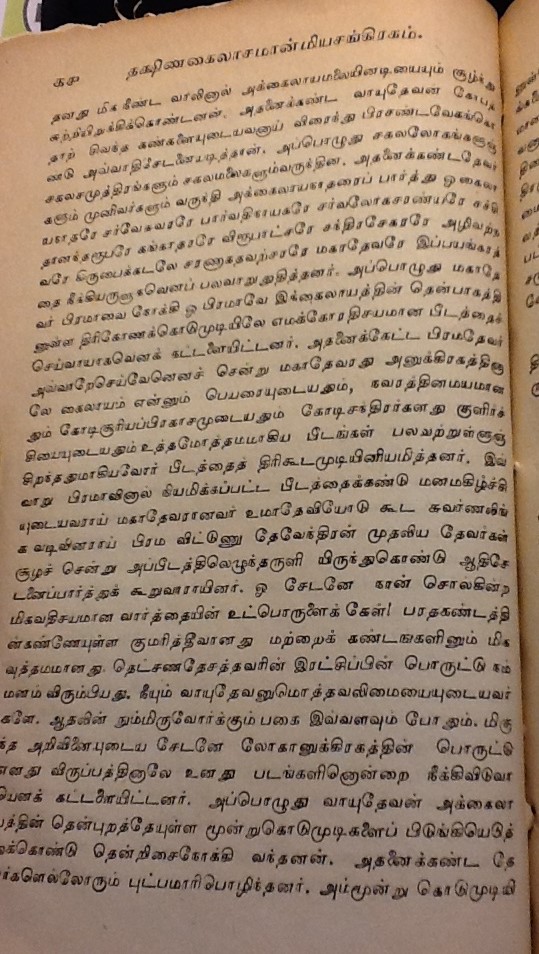 கச தக்ஷிணகைலாசமான்மியசங்கிரகம்.
தனது மிக நீண்ட வாலினால் அக்கைலாயமலையினடியையும் சூழ்ந்து
சுற்றியிறுக்கிக்கொண்டனன். அதனைக்கண்ட வாயுதேவன் கோபத்
தாற் சிவந்த கண்களையுடையவனாய் விரைந்து பிரசண்டவேகங்கொ
ண்டு அவ்வாதிசேடனையடித்தான். அப்பொழுது சகலலோகங்களும்
சகலசமுத்திரங்களும் சகலமலைகளும்வருந்தின. அதனைக்கண்டதேவர்
களும் முனிவர்களும் வருந்தி அக்கைலாயநாதரைப் பார்த்து ஒ கைலா
யநாதரே சர்வேசுவரரே பார்வதிநாயகரே சர்வலோகசரண்யரே சச்சி
தானந்தரூபரே கங்காதரரே விரூபாட்சரரே சந்திரசேகரரே அழிவற்ற
வரே கிருபைக்கடலே சரணாகதவற்சரரே மகாதேவரே இப்பயங்கரத்
தை நீக்கியருளுகவெனப் பலவாறுதுதித்தனர். அப்பொழுது மகாதே
வர் பிரமாவை நோக்கி ஒ பிரமாவே இக்கைலாயத்தின் தென்பாகத்தி
னுள்ள திரிகோணக்கொடுமுடியிலே எமக்கோரதிசயமான பீடத்தைச்
செய்வாயாகவெனக் கட்டளையிட்டனர். அதனைக்கேட்ட பிரமதேவர்
அவ்வாறேசெய்வேனெனச் சென்று மகாதேவரது அனுக்கிரகத்தினா
லே கைலாயம் என்னும் பெயரையுடையதும், நவரத்தினமயமான
தும் கோடிசூரியப்பிரகாசமுடையதும் கோடிசந்திரர்களது குளிர்ச்
சியையுடையதும் உத்தமோத்தமமாகிய பீடங்கள் பலவற்றுள்ளுஞ்
சிறந்ததுமாகியவோர் பீடத்தைத் திரிகூடமுடியினியமித்தனர். இவ்
வாறு பிரமாவினால் நியமிக்கப்பட்ட பீடத்தைக்கண்டு மனமகிழ்ச்சி
யுடையவராய் மகாதேவரானவர் உமாதேவியோடு கூட சுவர்ணலிங்
க வடிவினராய் பிரம விட்டுணு தேவேந்திரன் முதலிய தேவர்கள்
சூழச் சென்று அப்பீடத்திலெழுந்தருளி யிருந்துகொண்டு ஆதிசே
டனைப்பார்த்துக் கூறுவாராயினர். ஒ சேடனே நான் சொல்கின்ற
மிகவதிசயமான வார்த்தையின் உட்பொருளைக் கேள்! பரதகண்டத்தி
ன்கண்ணேயுள்ள குமரித்தீவானது மற்றைக் கண்டங்களினும் மிக
வுத்தமமானது. தெட்சணதேசத்தவரின் இரட்சிப்பின் பொருட்டு நம்
மனம் விரும்பியது. நீயும் வாயுதேவனுமொத்தவலிமையையுடையவர்
களே. ஆதலின் நும்மிருவோர்க்கும் பகை இவ்வளவும் போதும். மிகு
ந்த அறிவினையுடைய சேடனே லோகானுக்கிரகத்தின் பொருட்டு
எனது விருப்பத்தினாலே உனது படங்களினொன்றை நீக்கிவிடுவா
யெனக் கட்டளையிட்டனர். அப்பொழுது வாயுதேவன் அக்கைலா
யத்தின் தென்புறத்தேயுள்ள மூன்றுகொடுமுடிகளைப் பிடுங்கியெடுத்
துக்கொண்டு தென்றிசைநோக்கி வந்தனன். அதனைக்கண்ட தே
வர்களெல்லோரும் புட்பமாரிபொழிந்தனர். அம்மூன்று கொடுமுடியி